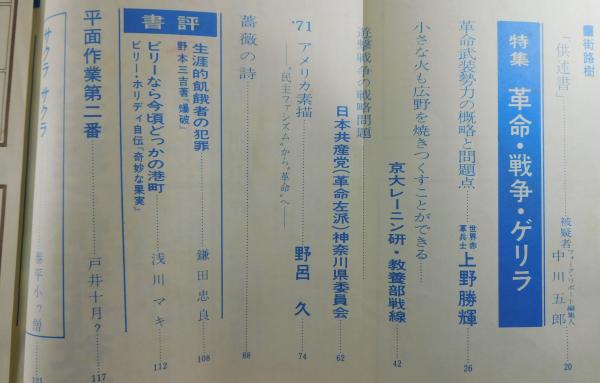 ■街路樹
『供述書』
被疑者
フォーク・リポート編集人
中川五郎
20
特集 革命・戦争・ゲリラ
革命武装勢力の概略と問題点
世界赤軍兵士
上野勝輝
26
小さな火も広野を焼きつくすことができる
京大レーニン研・教養部戦線
42
遊撃戦争の戦略問題
日本共産党(革命左派)神奈川県委員会
62
'71 アメリカ素描
――“民主ファシズム”から“革命”へ――
野呂 久
74
薔薇の詩
88
書評
生涯的飢餓者の犯罪
野本三吉著『爆破』
鎌田忠良
108
ビリーなら今頃どっかの港町
ビリー・ホリディ自伝『奇妙な果実』
浅川マキ
112
平面作業第二番
戸井十月？
117
サクラ サクラ
泰平小っ僧
121